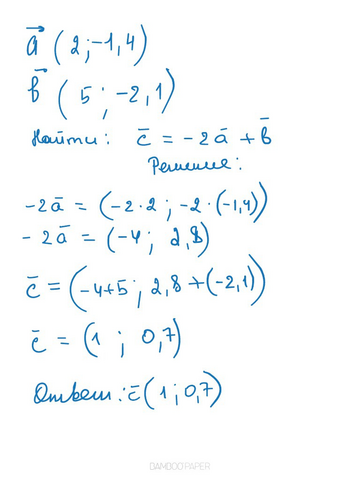 a⃗ (2;-1,4)
b⃗ (5;-2,1)
Найти: c̄ = -2ā + b̄
Решение:
-2ā = (-2·2; -2·(-1,4))
-2ā = (-4; 2,8)
c̄ = (-4+5; 2,8+(-2,1))
c̄ = (1; 0,7)
Ответ: c̄(1;0,7)
BAMBOO PAPER